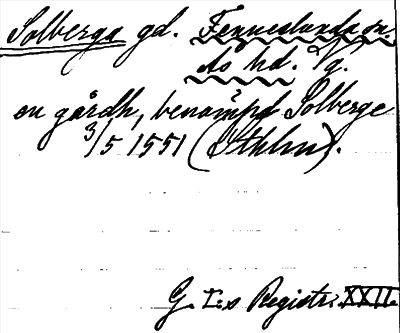 Solberga gd. Fenneslunda sn.
Ås hd. Vg.
en gårdh, benämpd Solberge
3/5 1551 (Sthlm).
G. I:s Registr. XXII